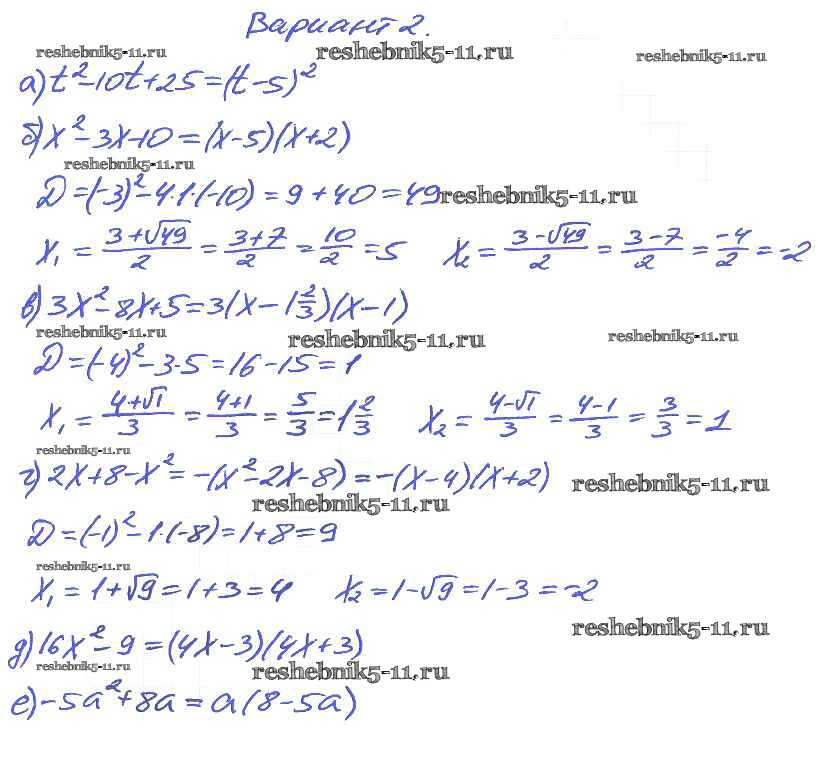 Вариант 2.
reshebnik5-11.ru reshebnik5-11.ru reshebnik5-11.ru
а) t²-10t+25=(t-5)²
б) x²-3x-10=(x-5)(x+2)
reshebnik5-11.ru
D=(-3)²-4·1·(-10)=9+40=49 reshebnik5-11.ru
x₁ = (3+√49)/2 = (3+7)/2 = 10/2 = 5 x₂ = (3-√49)/2 = (3-7)/2 = -4/2 = -2
в) 3x²-8x+5=3(x-1 2/3)(x-1)
reshebnik5-11.ru reshebnik5-11.ru reshebnik5-11.ru
D=(-4)²-3·5=16-15=1
x₁ = (4+√1)/3 = (4+1)/3 = 5/3 = 1 2/3 x₂ = (4-√1)/3 = (4-1)/3 = 3/3 = 1
reshebnik5-11.ru
г) 2x+8-x²=-(x²-2x-8)=-(x-4)(x+2) reshebnik5-11.ru
reshebnik5-11.ru
D=(-1)²-1·(-8)=1+8=9
reshebnik5-11.ru
x₁=1+√9=1+3=4 x₂=1-√9=1-3=-2
reshebnik5-11.ru
д) 16x²-9=(4x-3)(4x+3)
reshebnik5-11.ru reshebnik5-11.ru
е) -5a²+8a=a(8-5a)